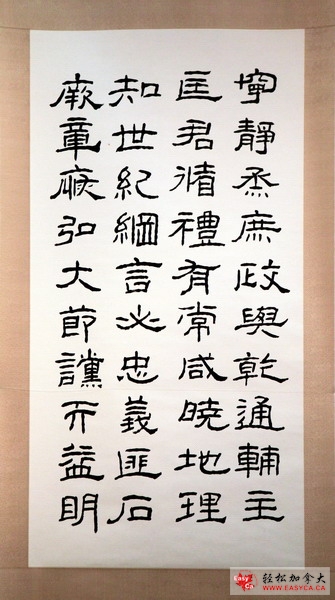 寧靜烝庶政與乾通輔主
匡君循禮有常咸曉地理
知世紀綱言必忠義匪石
厥章恢弘大節讜而益明
Easy
轻松加拿大
WWW.EASYCA.CA